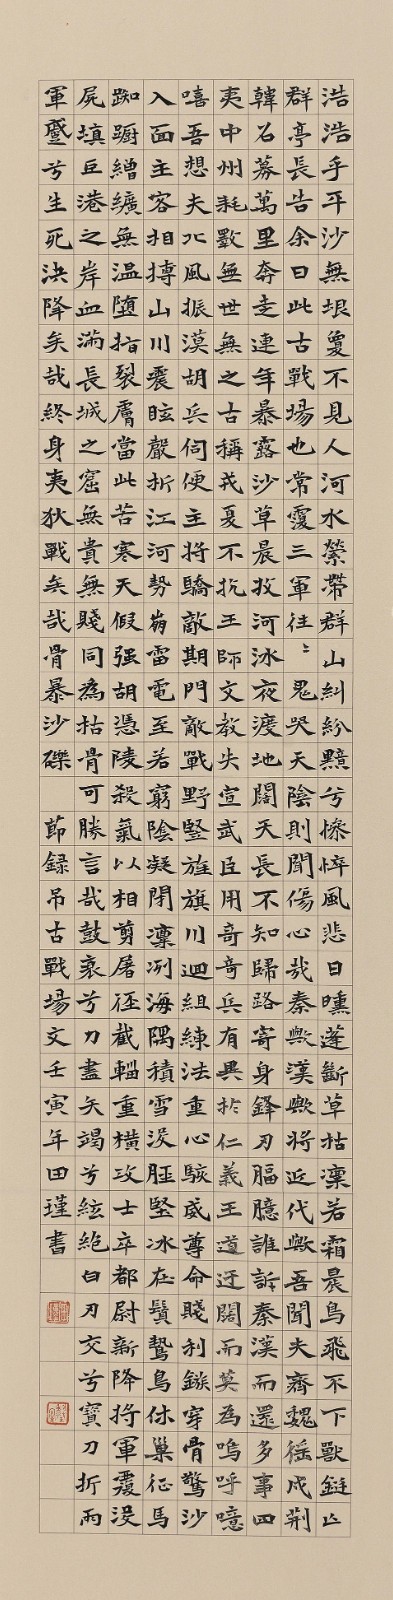 浩浩乎平沙無垠敻不見人河水縈帶群山糾紛黯兮慘悴風悲日曛蓬斷草枯凜若霜晨鳥飛不下獸鋌亾
群亭長告余曰此古戰場也常覆三軍往〻鬼哭天陰則聞傷心哉秦歟漢歟將近代歟吾聞夫齊魏徭戍荆
韓召募萬里奔走連年暴露沙草晨牧河冰夜渡地闊天長不知歸路寄身鋒刃腷臆誰訴秦漢而還多事四
夷中州耗斁無世無之古稱戎夏不抗王師文教失宣武臣用奇奇兵有異扵仁義王道迂闊而莫為嗚呼噫
嘻吾想夫北風振漠胡兵伺便主將驕敵期門敵戰野豎旌旗川迴組練法重心駭威尊命賤利鏃穿骨驚沙
入面主客相搏山川震眩聲折江河勢崩雷電至若窮陰凝閉凜冽海隅積雪沒脛堅冰在鬚鷙鳥休巢征馬
踟躕繒纊無温墮指裂膚當此苦寒天假强胡憑陵殺氣以相剪屠徑截輜重橫攻士卒都尉新降將軍覆沒
屍填巨港之岸血滿長城之窟無貴無賤同為枯骨可勝言哉鼓衰兮力盡矢竭兮絃絶白刃交兮寶刀折兩
軍蹙兮生死決降矣哉終身夷狄戰矣哉骨暴沙礫 節録吊古戰場文壬寅年田瑾書